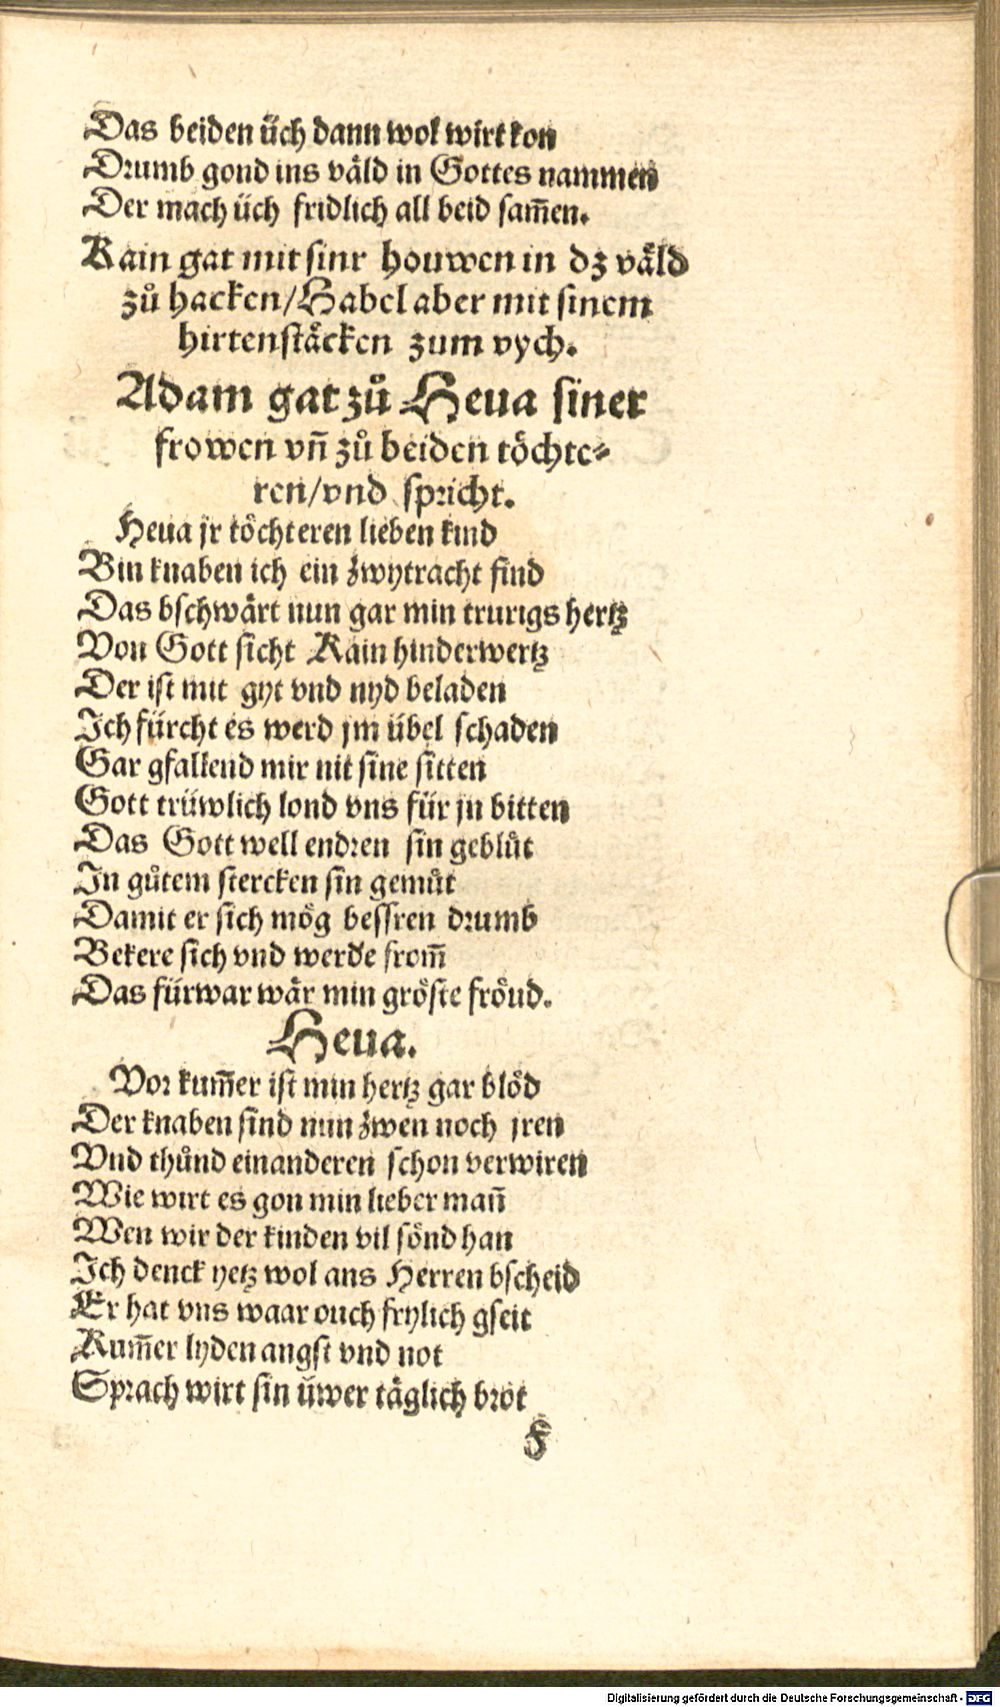 Das beiden üch dann wol wirt kon
Drumb gond ins väld in Gottes nammen
Der mach üch fridlich all beid sam̄en.
Kain gat mit sinr houwen in dz väld
zů hacken/Habel aber mit sinem
hirtenstäcken zum vych.
Adam gat zů Heua siner
frowen vñ zů beiden töchte⸗
ren/vnd spricht.
Heua jr töchteren lieben kind
Bin knaben ich ein zwytracht find
Das bschwärt nun gar min trurigs hertz
Von Gott sicht Kain hinderwertz
Der ist mit gyt vnd nyd beladen
Ich fürcht es werd jm übel schaden
Gar gfallend mir nit sine sitten
Gott trüwlich lond vns für jn bitten
Das Gott well endren sin geblůt
In gůtem stercken sin gemůt
Damit er sich mög bessren drumb
Bekere sich vnd werde from̄
Das fürwar wär min gröste fröud.
Heua.
Vor kum̄er ist min hertz gar blöd
Der knaben sind nun zwen noch jren
Vnd thůnd einanderen schon verwiren
Wie wirt es gon min lieber mañ
Wen wir der kinden vil sönd han
Ich denck yetz wol ans Herren bscheid
Er hat vns waar ouch frylich gseit
Kum̄er lyden angst vnd not
Sprach wirt sin üwer täglich brot
F
Digitalisierung gefördert durch die Deutsche Forschungsgemeinschaft - DFG